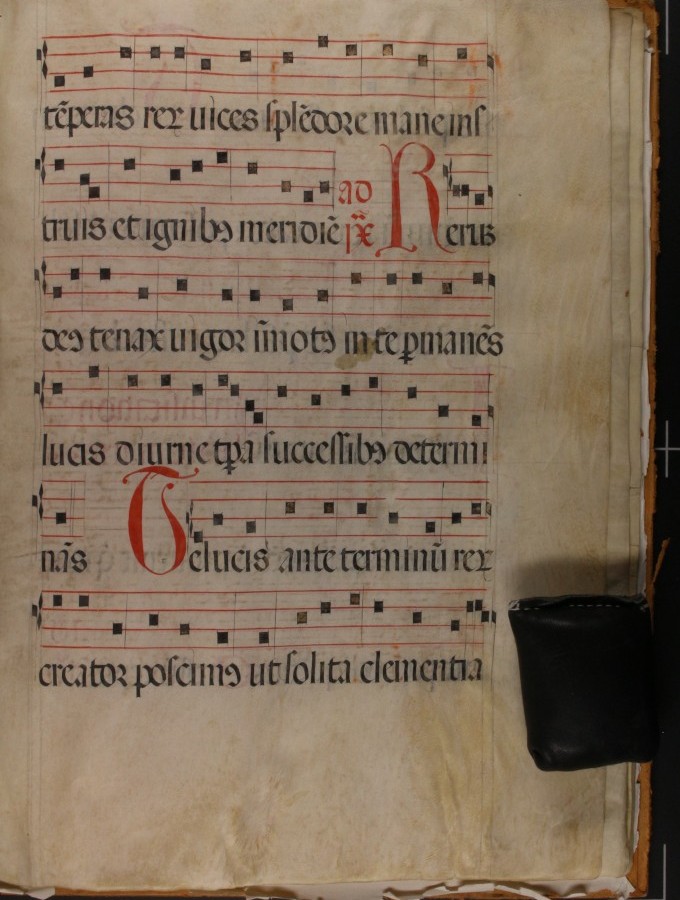 tēperas rex uices splēdore mane ins
truis et ignibꝯ meridiē ad R
ix̄ erus
deꝯ tenax uigor īmotꝯ in te ꝑmanēs
lucis diurne tꝑa successibꝯ determi
nās Te lucis ante terminū rex
creator poscimꝯ ut solita clementia